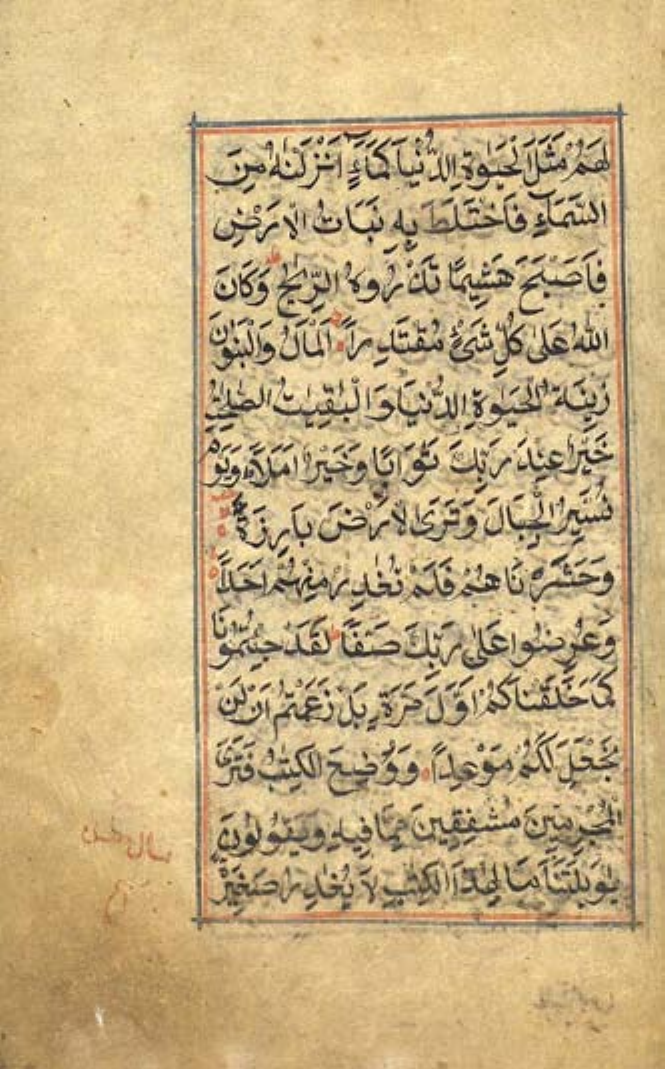 لَهُمْ مَثَلَ الْحَيٰوةِ الدُّنْيَا كَمَآءٍ اَنْزَلْنٰهُ مِنَ
السَّمَآءِ فَاخْتَلَطَ بِهٖ نَبَاتُ الْاَرْضِ
فَاَصْبَحَ هَشِيمًا تَذْرُوهُ الرِّيٰحُ وَكَانَ
اللّٰهُ عَلٰى كُلِّ شَىْءٍ مُقْتَدِرًا اَلْمَالُ وَالْبَنُونَ
زِينَةُ الْحَيٰوةِ الدُّنْيَا وَالْبٰقِيٰتُ الصّٰلِحٰتُ
خَيْرٌ عِنْدَ رَبِّكَ ثَوَابًا وَخَيْرٌ اَمَلًا وَيَوْمَ
نُسَيِّرُ الْجِبَالَ وَتَرَى الْاَرْضَ بَارِزَةً
وَحَشَرْنَاهُمْ فَلَمْ نُغَادِرْ مِنْهُمْ اَحَدًا
وَعُرِضُوا عَلٰى رَبِّكَ صَفًّا لَقَدْ جِئْتُمُونَا
كَمَا خَلَقْنَاكُمْ اَوَّلَ مَرَّةٍ بَلْ زَعَمْتُمْ اَنْ لَنْ
نَجْعَلَ لَكُمْ مَوْعِدًا وَوُضِعَ الْكِتٰبُ فَتَرَى
الْمُجْرِمِينَ مُشْفِقِينَ مِمَّا فِيهِ وَيَقُولُونَ
يٰوَيْلَتَنَا مَا لِهٰذَا الْكِتٰبِ لَا يُغَادِرُ صَغِيرَةً